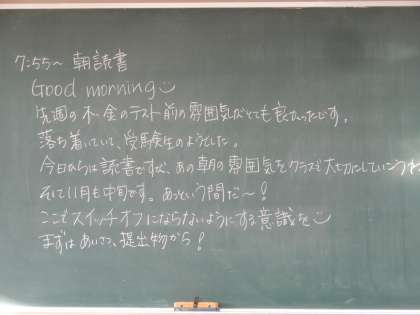 7:55〜 朝読書
Good morning
先週の木・金のテスト前の雰囲気がとても良かったです。
落ち着いていて、受験生のようでした。
今日からは読書ですが、あの朝の雰囲気をクラスで大切にしていこうね
そして11月も中旬です。あっという間だ〜!
ここでスイッチオフにならないようにする意識を
まずはあいさつ、提出物から!